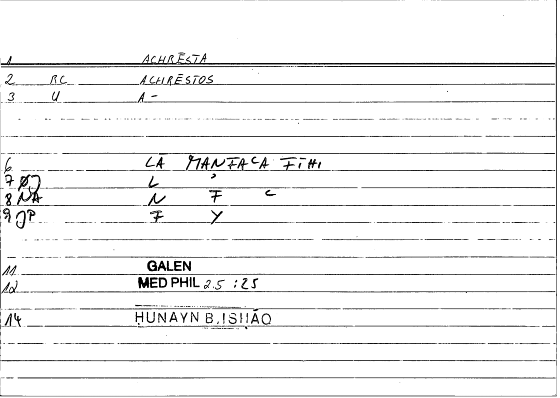 1 ACHRĒSTA
2 RC ACHRĒSTOS
3 U A-
6 LĀ MANFACA FĪHI
7 ØJ L ʾ
8 NA N F C
9 JP F Y
11 GALEN
12 MED PHIL 25 :25
14 HUNAYN B. ISHĀQ